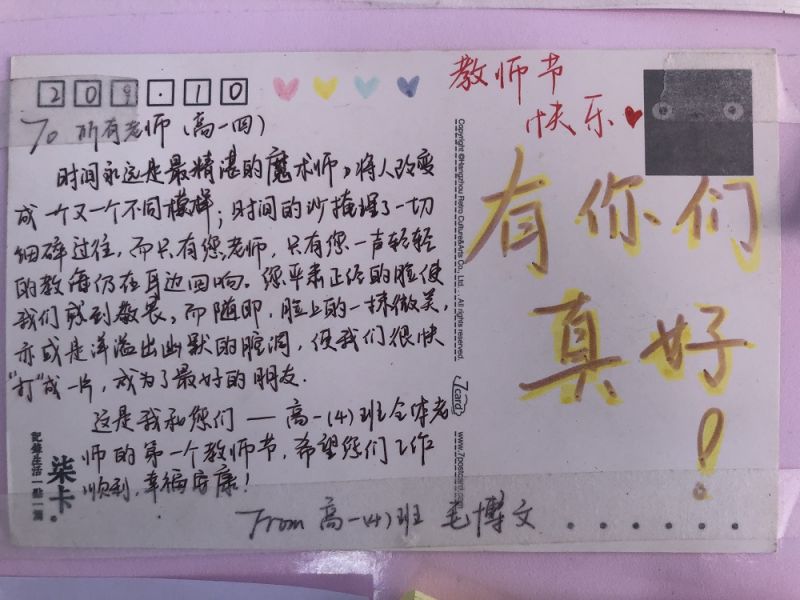 209.10
To 所有老师(高一四)
时间永远是最精湛的魔术师,将人改变
成一个又一个不同模样;时间的沙掩埋了一切
细碎过往,而只有您老师,只有您一声轻轻
的教诲仍在耳边回响。您严肃正经的脸使
我们感到敬畏,而随即,脸上的一抹微笑,
亦或是洋溢出幽默的腔调,使我们很快
"打"成一片,成为了最好的朋友.
这是我和您们——高一(4)班全体老
师的第一个教师节,希望您们工作
顺利,幸福安康!
From 高一(4)班 毛博文
記錄生活一點一滴
柒卡
Copyright ©Hangzhou Retro Culture&Arts Co., Ltd. . All rights reserved.
7card
www.7postcard.com
教师节
快乐
有你们
真好!